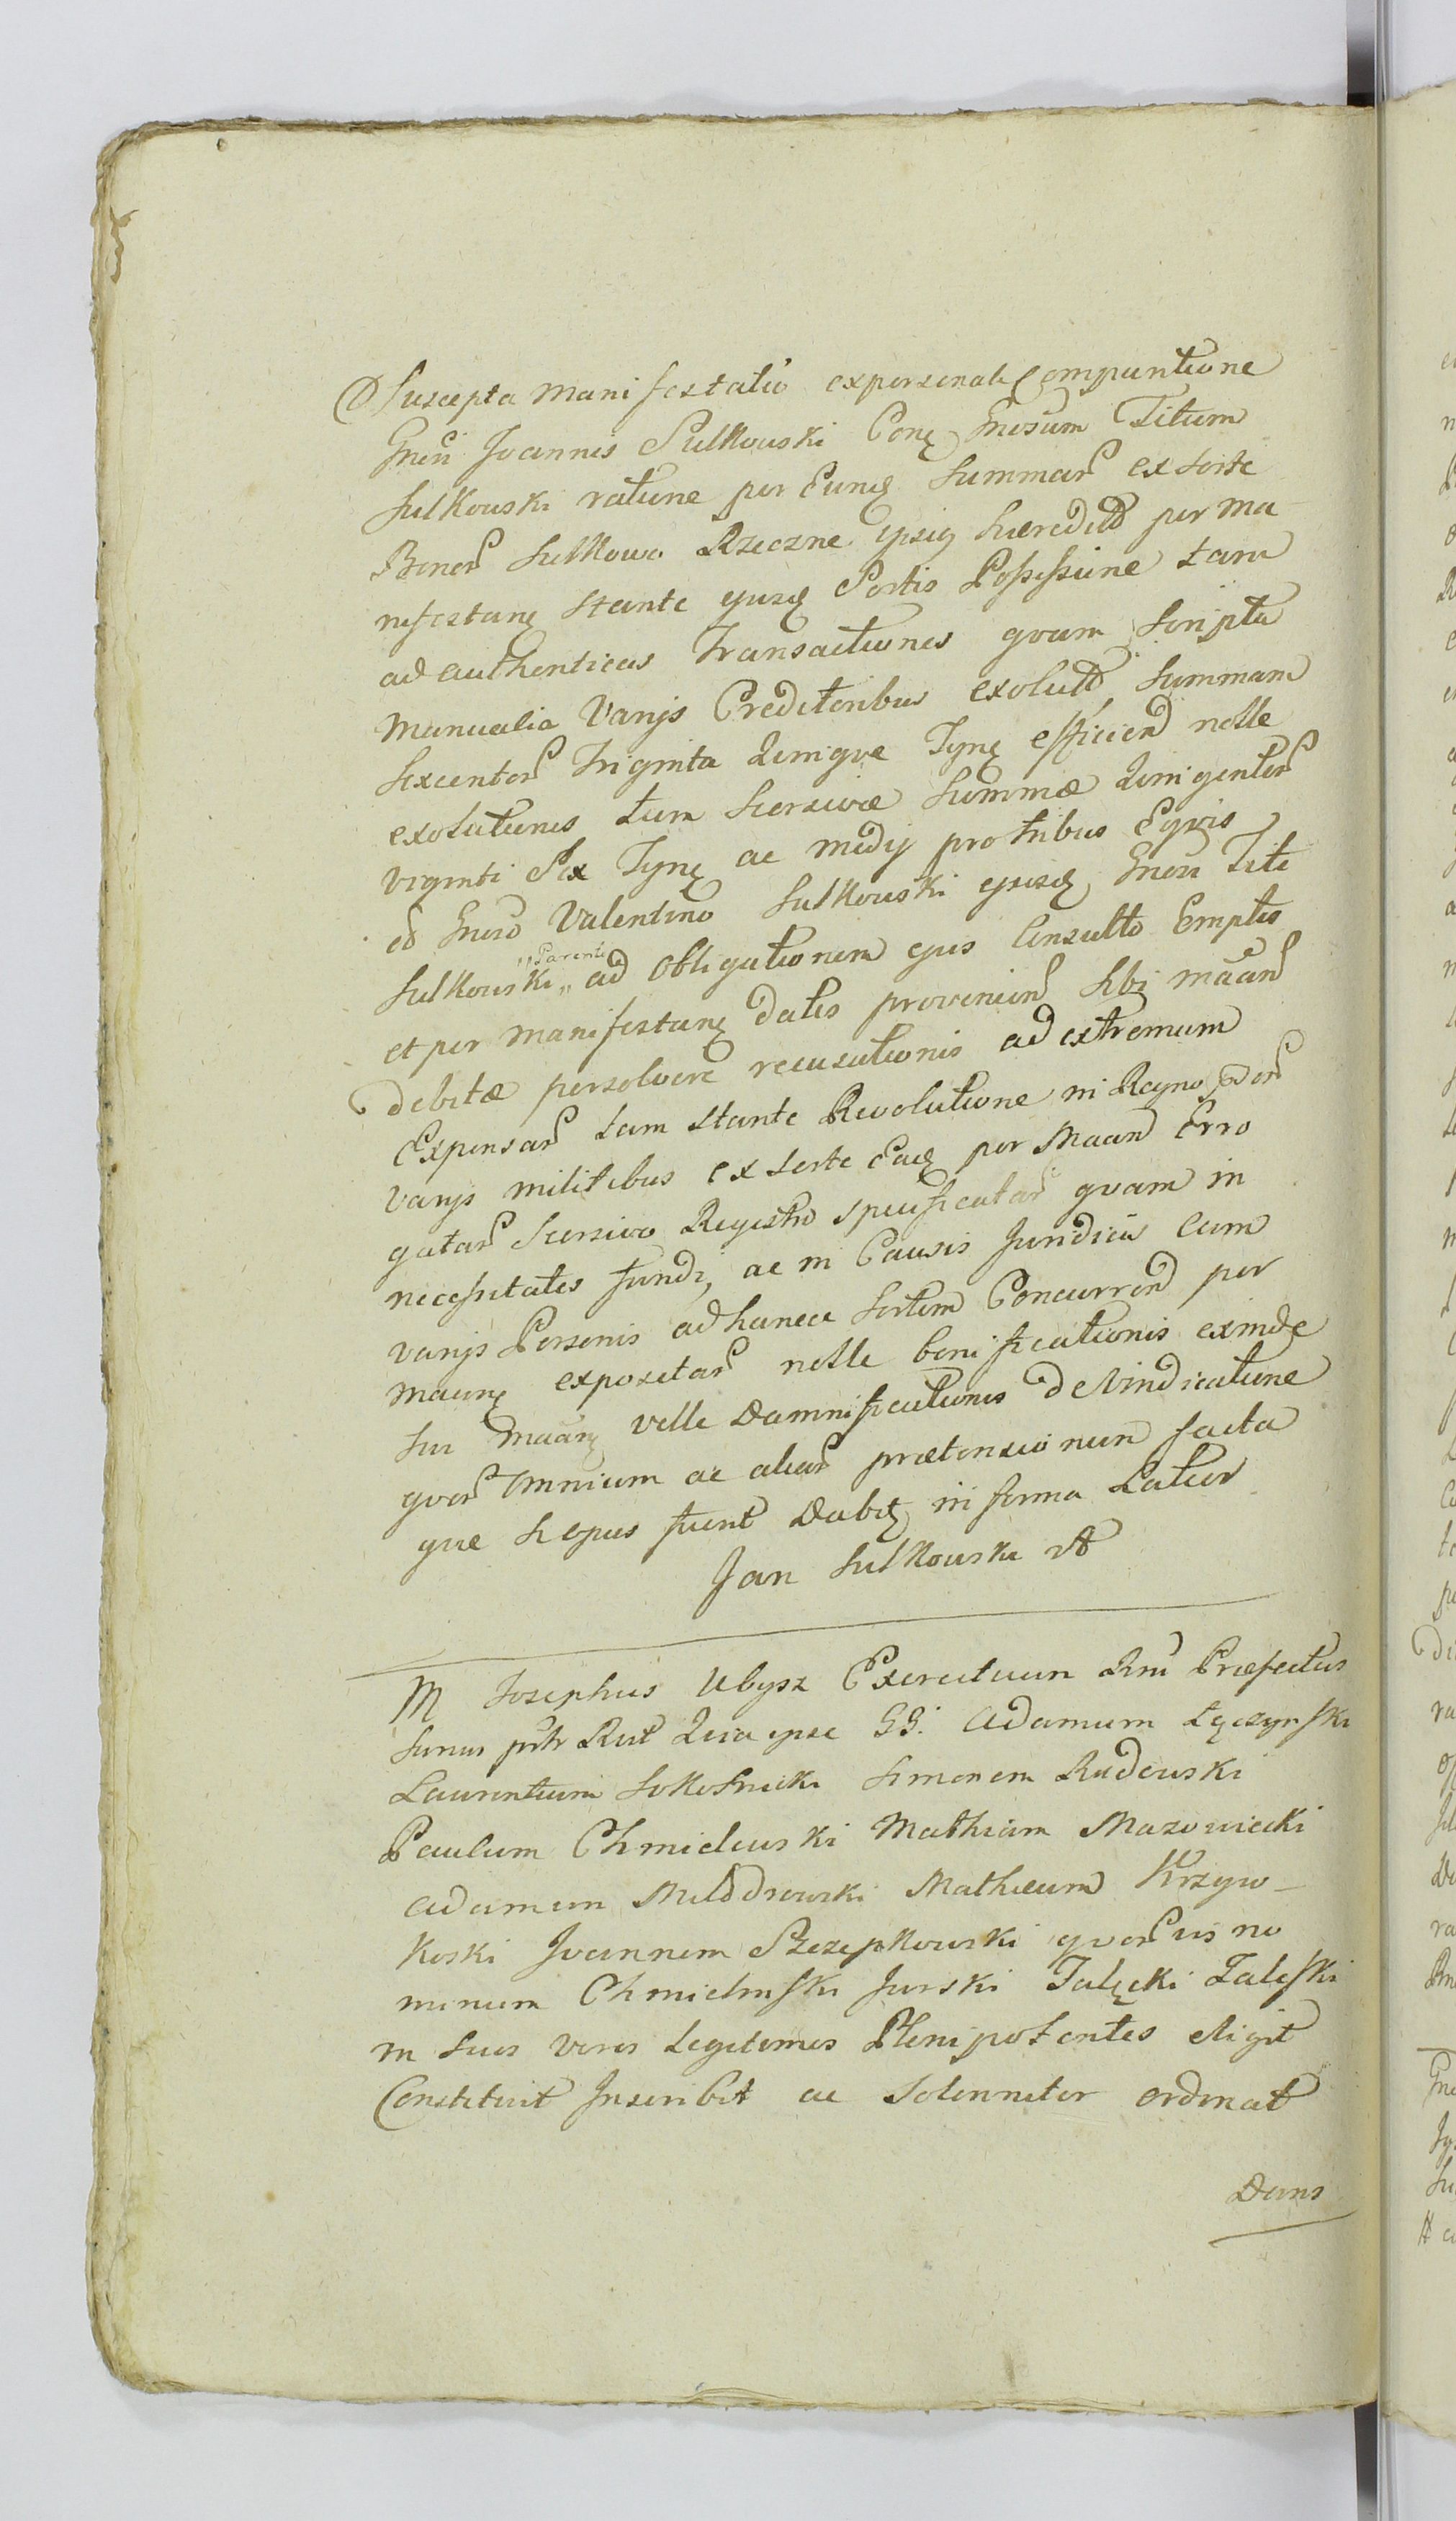 Suscepta Manifestatio expersonali Compartione
Gnesi Joannis Sulkowski Conę Gnesum Titum
Sulkowski ratione per Eunę Summar ex sorte
Bonor Sulkowo Rzeczne ipsię haeredit per Ma
nifestanę stante ejusę Sortis Possessione tam
ad authenticas Transactiones qvam Scripta
Manualia Varijs Creditoribus exolut Summam
Sexcentor Triginta Qvinqve Tynę efficien nolle
exolutionis tum Seorsivae Summae Qvingentor
viginti Sex Tynę ac medij pro tribus Eqvis
a Gneso Valentino Sulkowski ejusę Gnesi Titi
Sulkowski „Parente„ ad Obligationem ejus Consulto Emptis
et per Manifestanę datis provenien Sibi maan
debitae persolvere recusationis ad extremum
Expensar tam stante Revolutione in Regno
varijs militibus ex sorte Eaę per Maan Erro
gatar Seorsivo Regestro specificatar qvam in
necessitates fundi, ac in Causis Juridicis Cum
varijs Personis ad hance Sortem Concurren per
maanę expositar nolle bonificationis exinde
sui maanę velle Damnificationis de Vindicatione
qvor omnium ac aliar praetensionum facta
qve si opus fuerit Dabit in forma Latior
Jan Sulkowski

M Josephus Ubysz Exercituum Rni Praefectus
Sanus Quia ipse GG. Adamum Łęczynski
Laurentium Sokolnicki Simonem Rudowski
Paulum Chmielewski Mathiam Mazowiecki
Adamum Mathaeum Krzyw_
koski Joannem Szczepkowski qvor vis no
minum Chmielinski Jurski Zaleski
in Suos veros Legitimos Plenipotentes eligit
Constituit Inscribit ac Solenniter ordinat
Dans